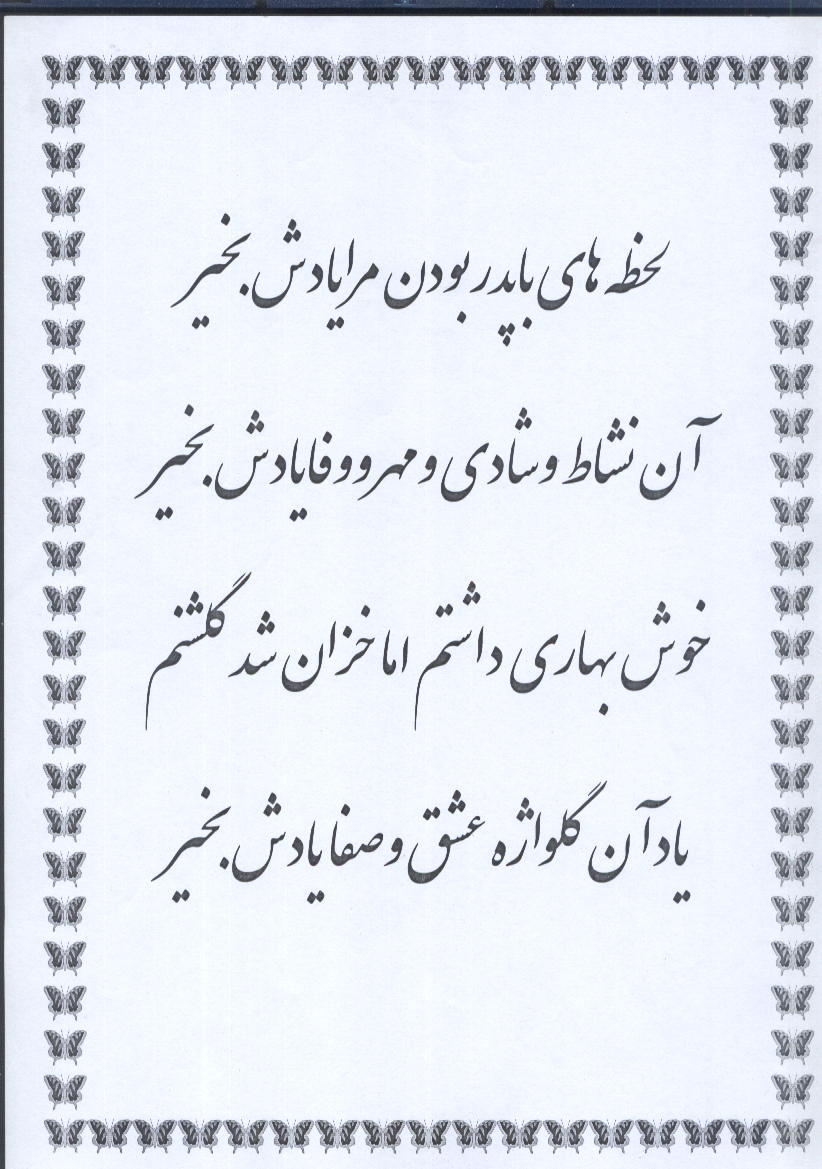 لحظه های با پدر بودن مرا یادش بخیر
آن نشاط و شادی و مهر و وفا یادش بخیر
خوش بهاری داشتم اما خزان شد گلشنم
یاد آن گلواژه عشق و صفا یادش بخیر